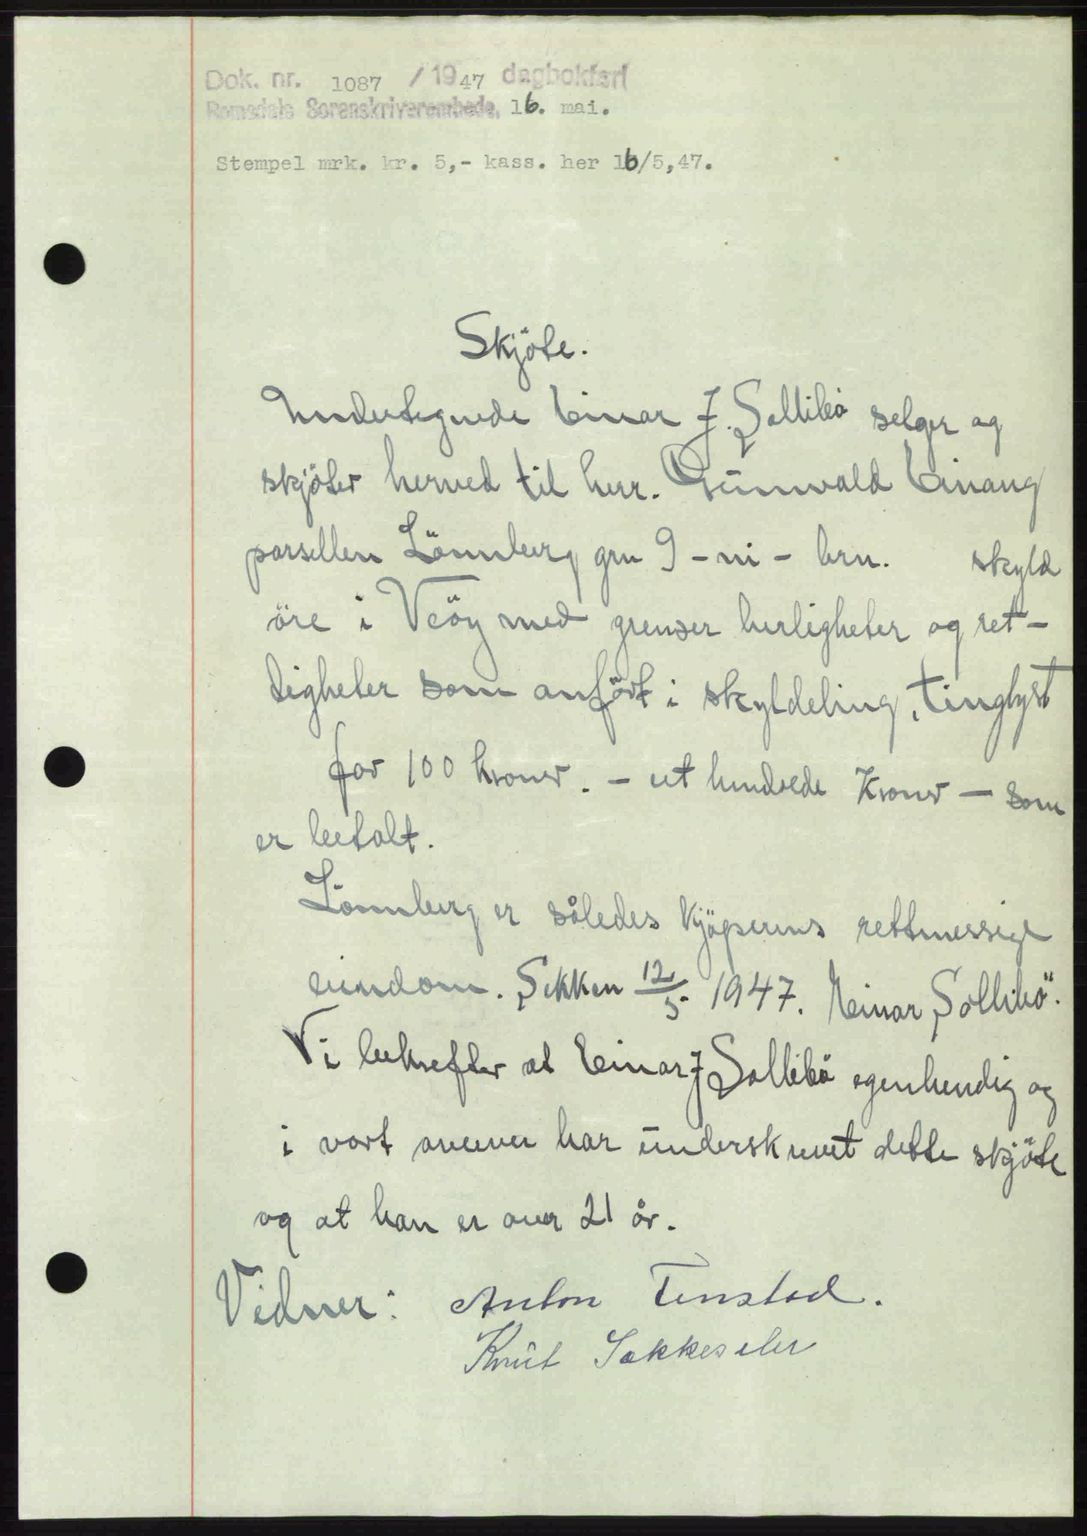 Dok. nr. 1087 / 1947 dagbokført
Romsdals Sorenskriverembede, 16. mai.
Stempel mrk. kr. 5,- kass. her 16/5,47.
Skjöte.
Undertegnede Einar J. Sollibö selger og
skjöter herved til herr. Grünwald Einang
parsellen Lönnberg gnr 9 - ni - brn. skyld
öre i Veöy med grenser herligheter og ret-
tigheter som anfört i skyldeling, tinglyst
for 100 kroner. - et hundrede kroner - som
er betalt.
Lönnberg er således kjöperens rettmessige
eiendom. Sekken 12/5 1947. Einar Sollibö.
Vi bekrefter at Einar J Sollibö egenhendig og
i vort nærver har ünderskrevet dette skjöte
og at han er over 21 år.
Vidner: Anton Tenstad.
Knut Sækkeseter